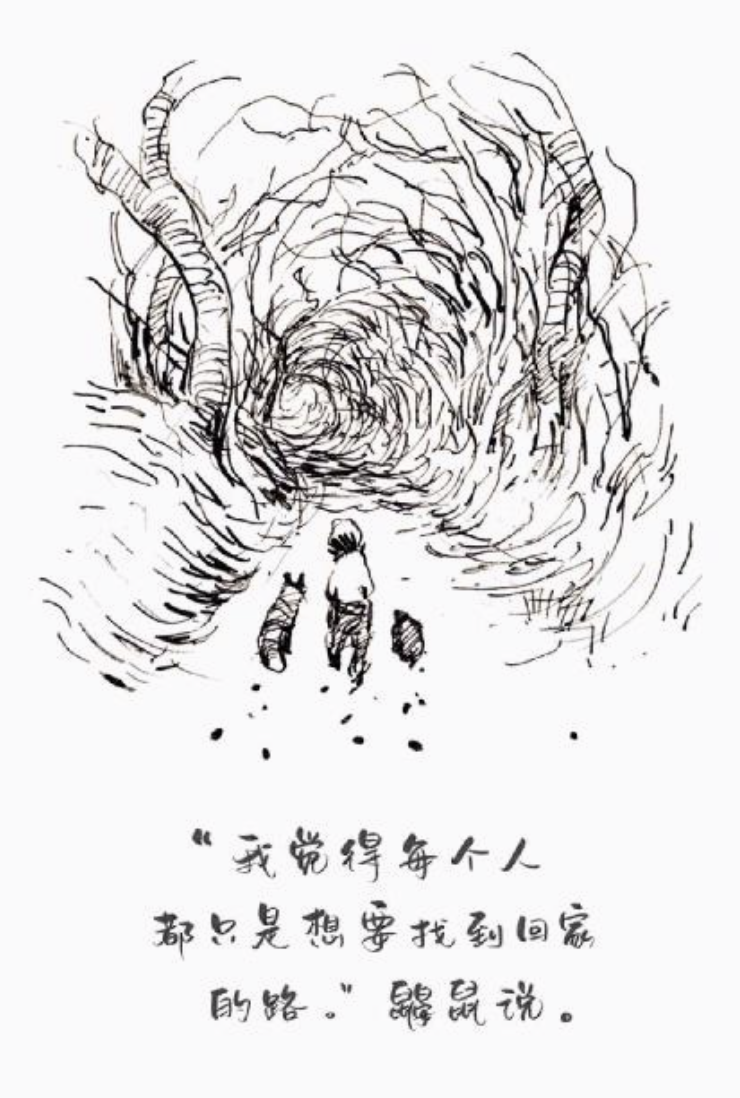 “我觉得每个人
都只是想要找到回家
的路。”鼹鼠说。